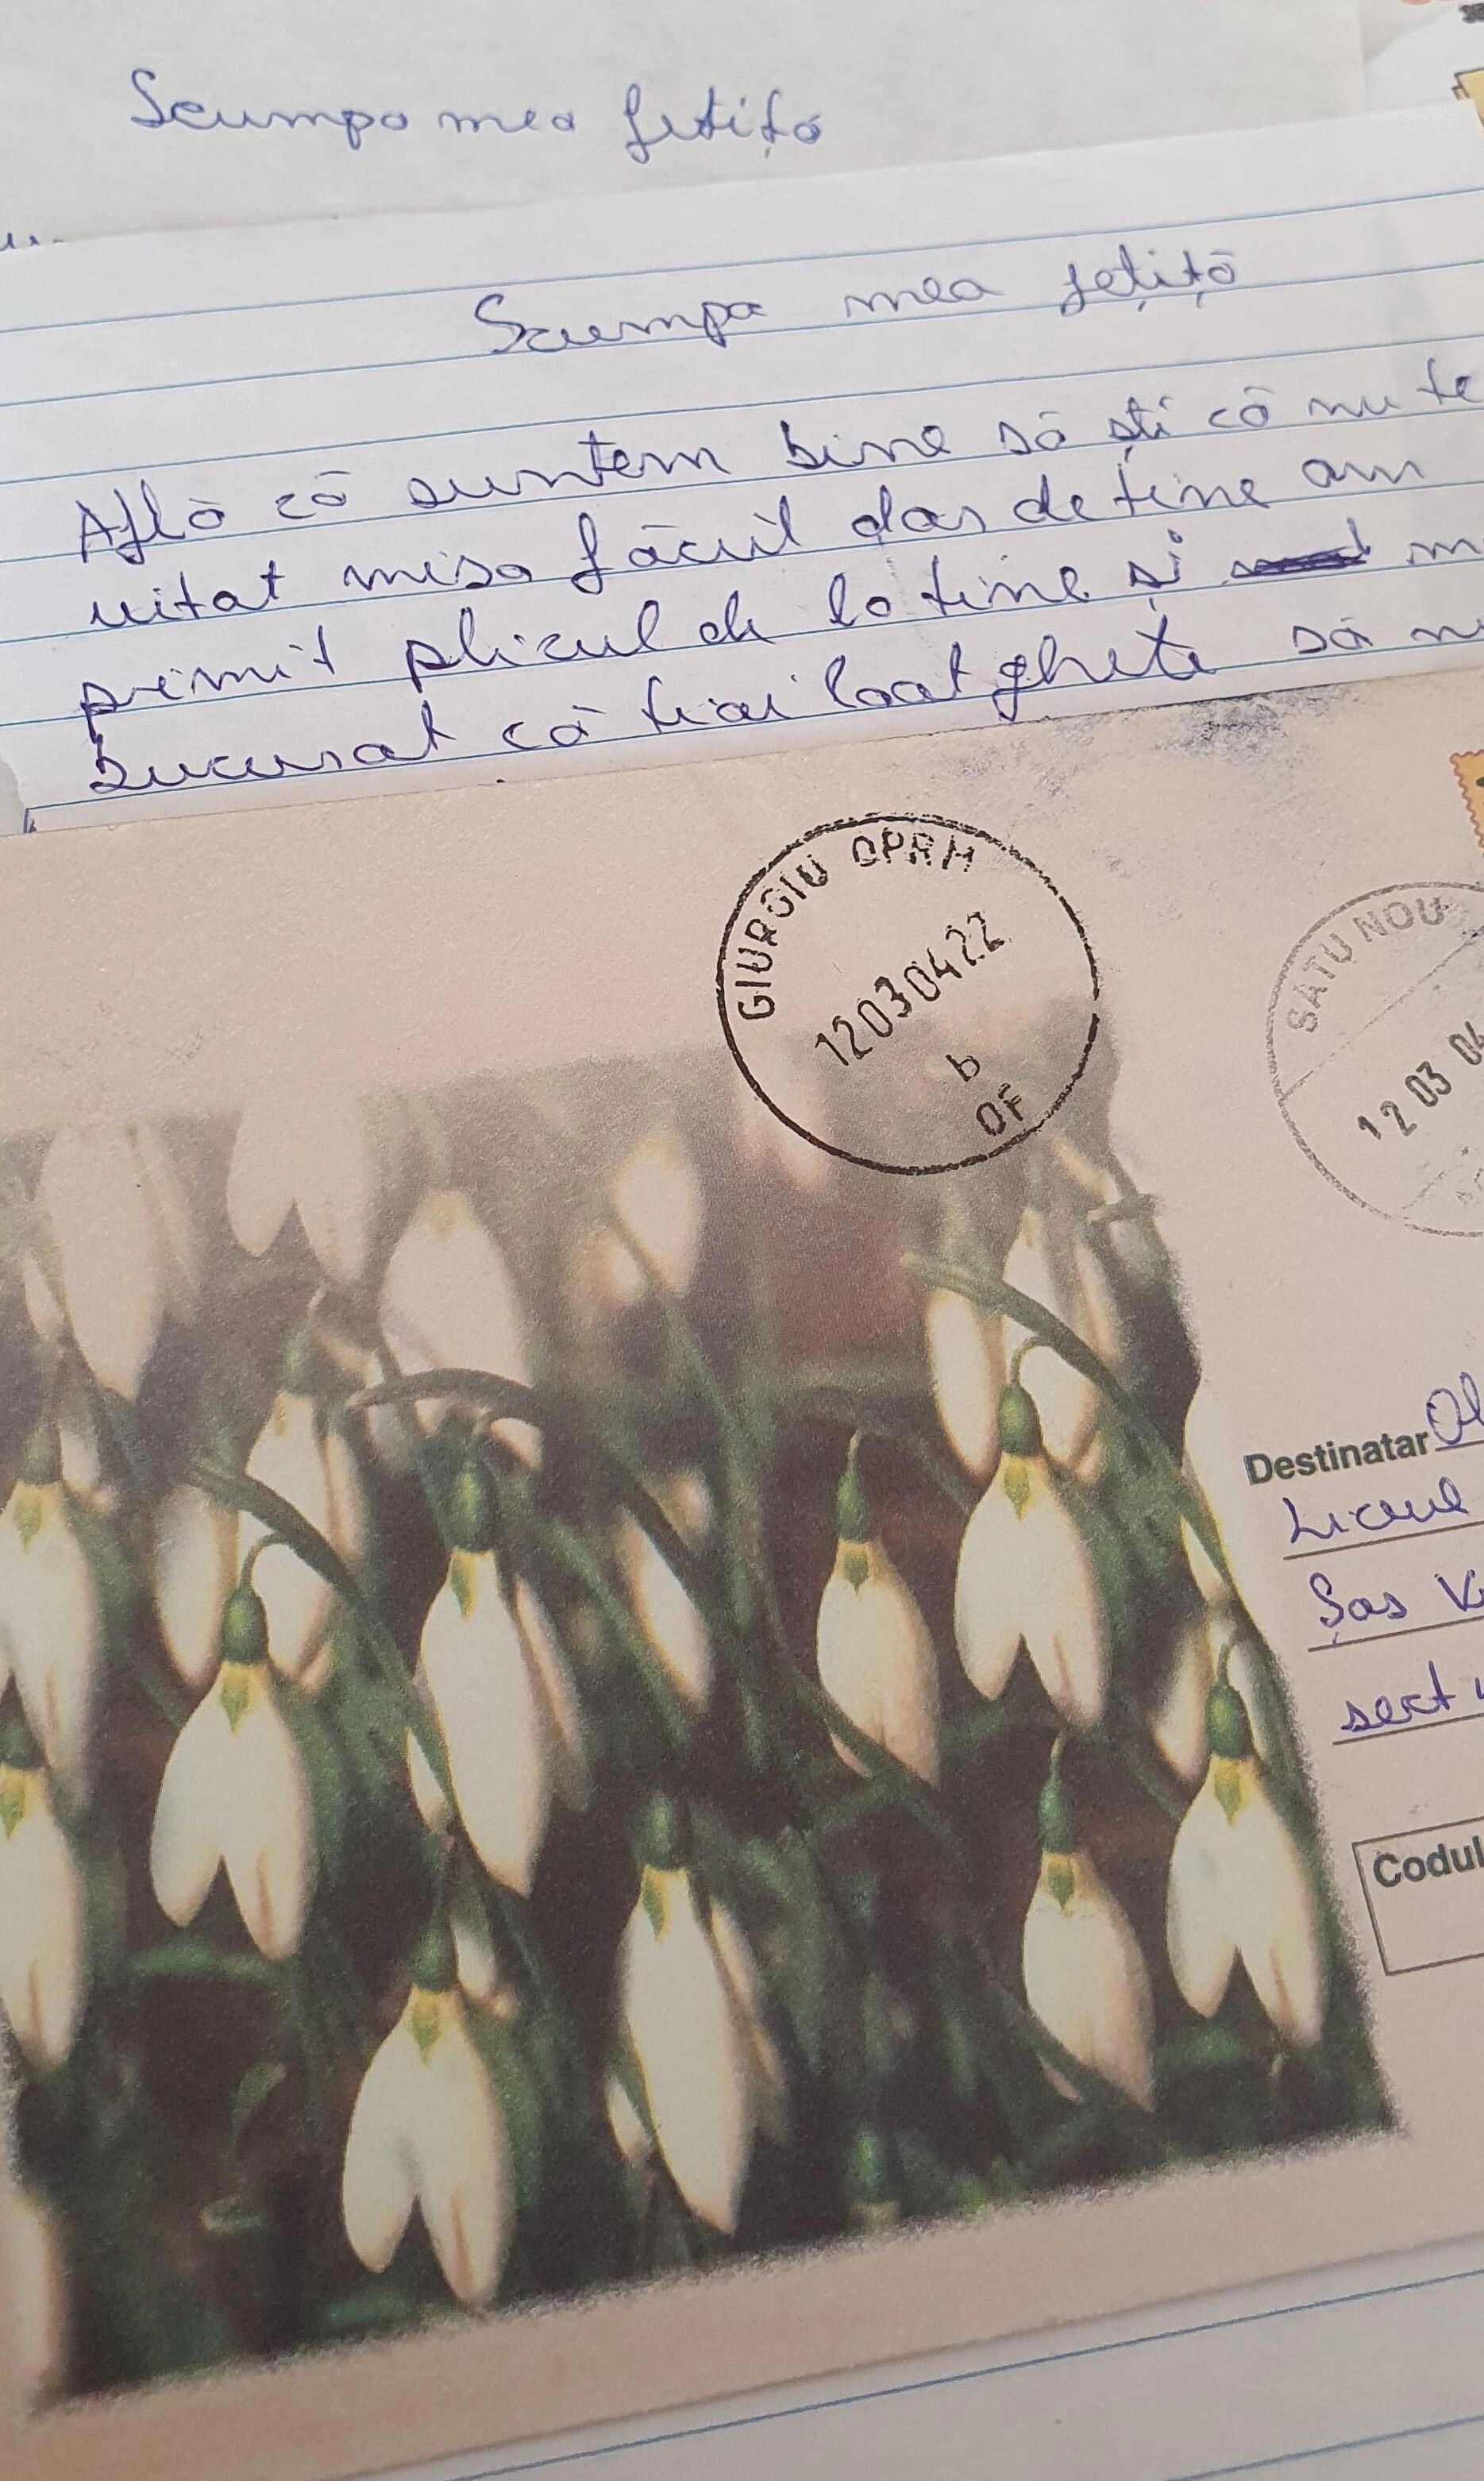 Scumpa mea fetiță
Scumpa mea fetiță
Află că suntem bine să ști că nu te
uitat misa făcut dar de tine am
primit plicul de la tine și
bucurat că tiai loat ghete să
GIURGIU OPRM
12030422
b
OF
SATU NOU
12 03 04
Destinatar
Liceul
Șos
Codul